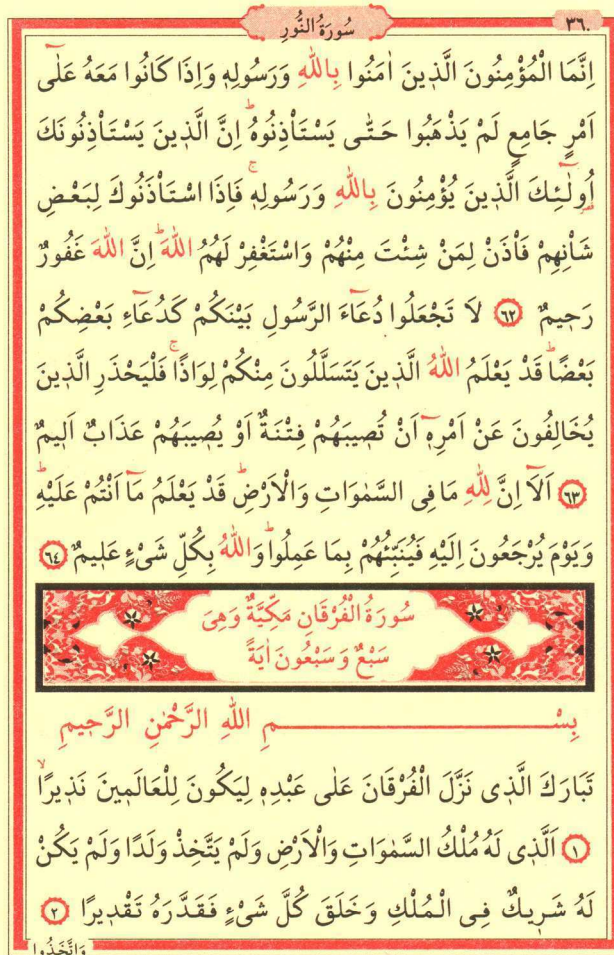 ٣٦٠
سُورَةُ النُّورِ
اِنَّمَا الْمُؤْمِنُونَ الَّذ۪ينَ اٰمَنُوا بِاللّٰهِ وَرَسُولِه۪ وَاِذَا كَانُوا مَعَهُ عَلٰٓى
اَمْرٍ جَامِعٍ لَمْ يَذْهَبُوا حَتّٰى يَسْتَأْذِنُوهُۜ اِنَّ الَّذ۪ينَ يَسْتَأْذِنُونَكَ
اُو۬لٰٓئِكَ الَّذ۪ينَ يُؤْمِنُونَ بِاللّٰهِ وَرَسُولِه۪ۚ فَاِذَا اسْتَأْذَنُوكَ لِبَعْضِ
شَأْنِهِمْ فَأْذَنْ لِمَنْ شِئْتَ مِنْهُمْ وَاسْتَغْفِرْ لَهُمُ اللّٰهَۜ اِنَّ اللّٰهَ غَفُورٌ
رَح۪يمٌ ﴿٦٢﴾ لَا تَجْعَلُوا دُعَٓاءَ الرَّسُولِ بَيْنَكُمْ كَدُعَٓاءِ بَعْضِكُمْ
بَعْضًاۜ قَدْ يَعْلَمُ اللّٰهُ الَّذ۪ينَ يَتَسَلَّلُونَ مِنْكُمْ لِوَاذًاۚ فَلْيَحْذَرِ الَّذ۪ينَ
يُخَالِفُونَ عَنْ اَمْرِه۪ٓ اَنْ تُص۪يبَهُمْ فِتْنَةٌ اَوْ يُص۪يبَهُمْ عَذَابٌ اَل۪يمٌ
﴿٦٣﴾ اَلَٓا اِنَّ لِلّٰهِ مَا فِى السَّمٰوَاتِ وَالْاَرْضِۜ قَدْ يَعْلَمُ مَٓا اَنْتُمْ عَلَيْهِۜ
وَيَوْمَ يُرْجَعُونَ اِلَيْهِ فَيُنَبِّئُهُمْ بِمَا عَمِلُواۜ وَاللّٰهُ بِكُلِّ شَىْءٍ عَل۪يمٌ ﴿٦٤﴾
سُورَةُ الْفُرْقَانِ مَكِّيَّةٌ وَهِىَ
سَبْعٌ وَ سَبْعُونَ اٰيَةً
بِسْــــــــــــمِ اللّٰهِ الرَّحْمٰنِ الرَّح۪يمِ
تَبَارَكَ الَّذ۪ى نَزَّلَ الْفُرْقَانَ عَلٰى عَبْدِه۪ لِيَكُونَ لِلْعَالَم۪ينَ نَذ۪يرًاۙ
﴿١﴾ اَلَّذ۪ى لَهُ مُلْكُ السَّمٰوَاتِ وَالْاَرْضِ وَلَمْ يَتَّخِذْ وَلَدًا وَلَمْ يَكُنْ
لَهُ شَر۪يكٌ فِى الْمُلْكِ وَخَلَقَ كُلَّ شَىْءٍ فَقَدَّرَهُ تَقْد۪يرًا ﴿٢﴾
وَاتَّخَذُوا